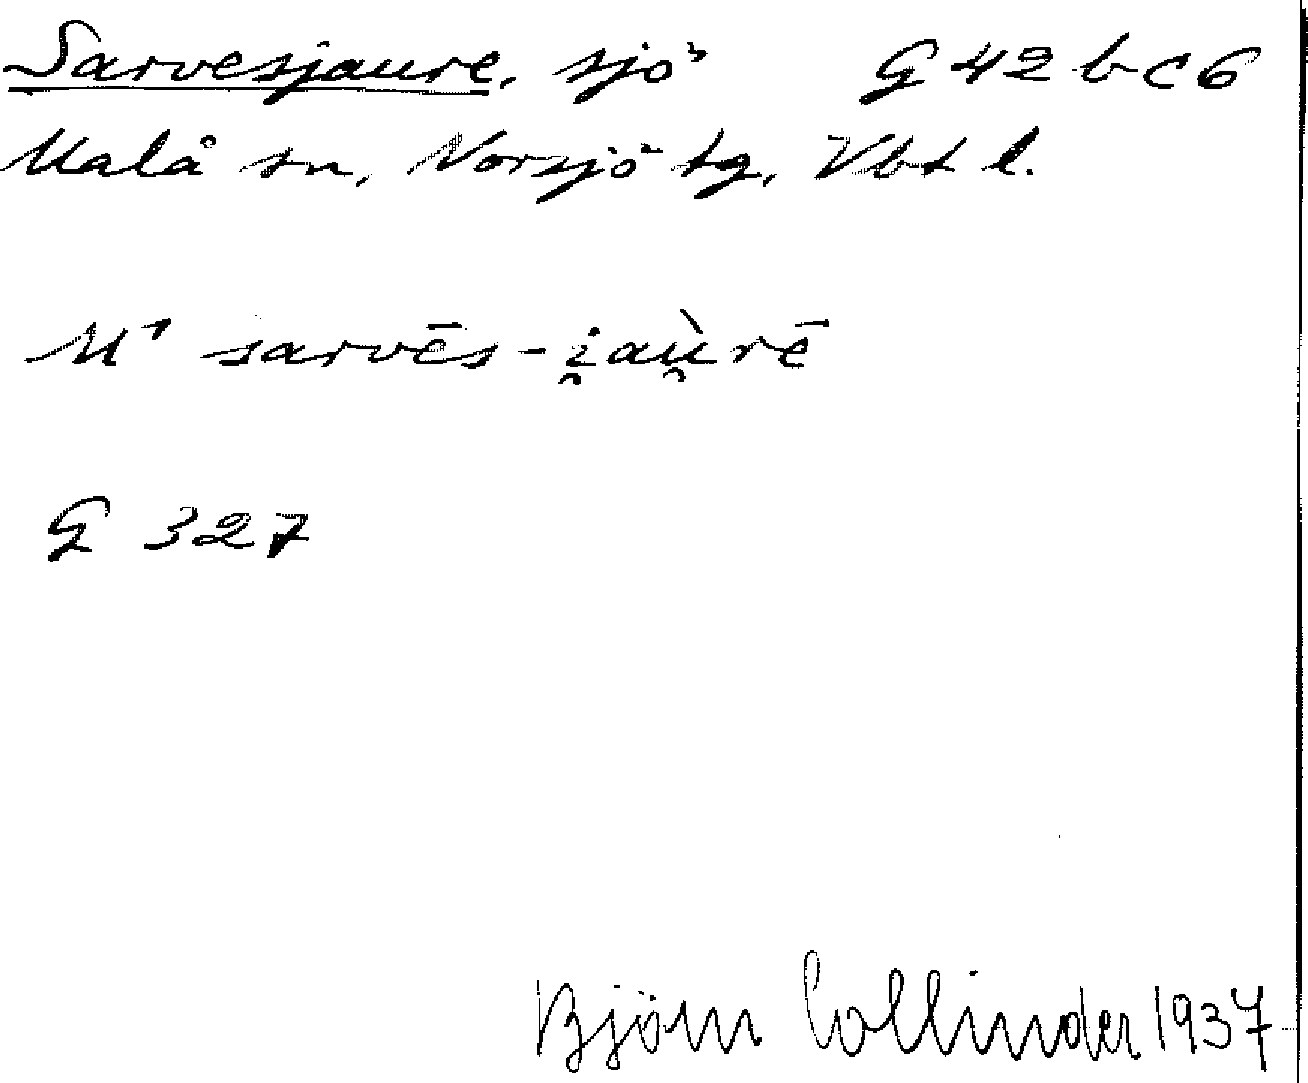 Sarvesjaure, sjö G 42 b c 6
Malå sn, Norsjö tg, Vbt l.
M¹ sarvēs-i̯aù̯rē
G 327
Björn Collinder 1937